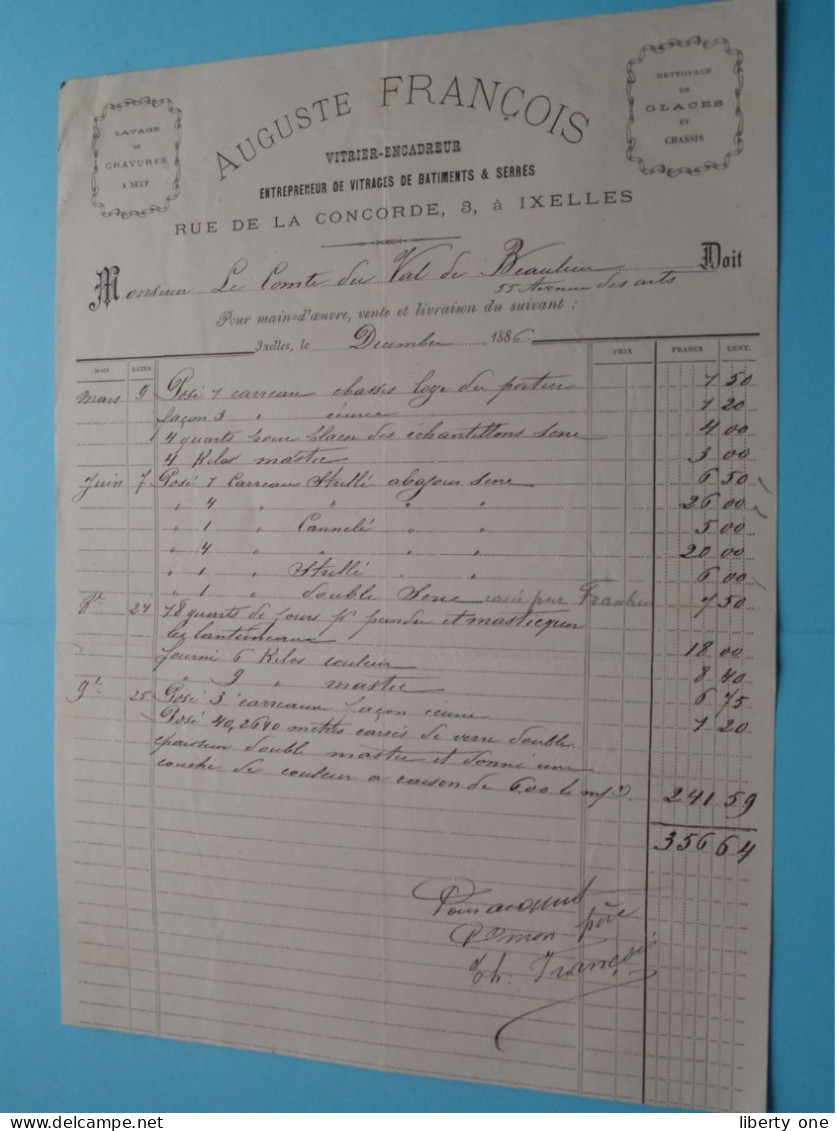 LAVAGE
DE
GRAVURES
A NEUF
AUGUSTE FRANÇOIS
NETTOYAGE
DE
GLACES
ET
CHASSIS
VITRIER-ENCADREUR
ENTREPRENEUR DE VITRAGES DE BATIMENTS & SERRES
RUE DE LA CONCORDE, 3, à IXELLES
Monsieur Le Comte du Val de Beaulieu Doit
55 Avenue des arts
Pour main-d'œuvre, vente et livraison du suivant :
Ixelles, le Décembre 1886
MOIS DATES PRIX FRANCS CENT.
Mars 9 Posé 1 carreau chassis loge du portier 1 50
façon 3 " 1 20
4 quarts pour placer des échantillons serre 4 00
4 Kilos mastic 3 00
Juin 7 Posé 1 Carreau Strillé abajour serre 6 50
" 4 " " " " 26 00
" 1 " Cannelé " " 5 00
" 4 " " " " 20 00
" 1 " Strillé " " 6 00
" 1 " double Serre cassé par Franken 7 50
8re 24 18 quarts de jours pr peindre et masticquer
les lanterneaux 18 00
fourni 6 Kilos couleur 8 40
" 9 " mastic 6 75
9re 25 Posé 3 carreaux façon 1 20
Posé 40,2640 mètres carrés de verre double
épaisseur double mastic et donné une
couche de couleur a raison de 6.00 le m/
241 59
356 64
Pour acquit
P mon père
Th. François
liberty one